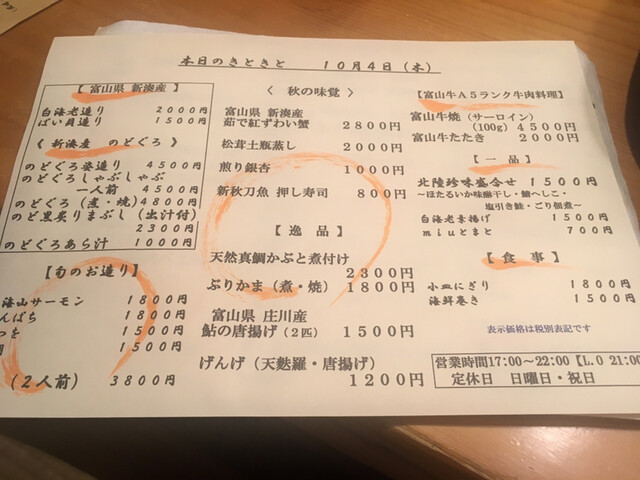 本日のきときと 10月4日(木)
【富山県 新湊産】
白海老造り 2000円
ばい貝造り 1500円
《新湊産 のどぐろ》
のどぐろ姿造り 4500円
のどぐろしゃぶしゃぶ
一人前 4500円
のどぐろ(煮・焼)4800円
のど黒炙りまぶし(出汁付)
2300円
のどぐろあら汁 1000円
【旬のお造り】
海山サーモン 1800円
んぱち 1800円
つを 1500円
1500円
(2人前) 3800円
〈 秋の味覚 〉
富山県 新湊産
茹で紅ずわい蟹 2800円
松茸土瓶蒸し 2000円
煎り銀杏 1000円
新秋刀魚 押し寿司 800円
【 逸 品 】
天然真鯛かぶと煮付け
2300円
ぶりかま(煮・焼) 1800円
富山県 庄川産
鮎の唐揚げ(2匹) 1500円
げんげ(天麩羅・唐揚げ)
1200円
【富山牛A5ランク牛肉料理】
富山牛焼(サーロイン)
(100g) 4500円
富山牛たたき 2000円
【 一 品 】
北陸珍味盛合せ 1500円
~ほたるいか味醂干し・鰯へしこ・
塩引き鮭・ごり佃煮~
白海老素揚げ 1500円
miuとまと 700円
【 食 事 】
小皿にぎり 1800円
海鮮巻き 1500円
表示価格は税別表記です
営業時間17:00~22:00【L.O 21:00
定休日 日曜日・祝日